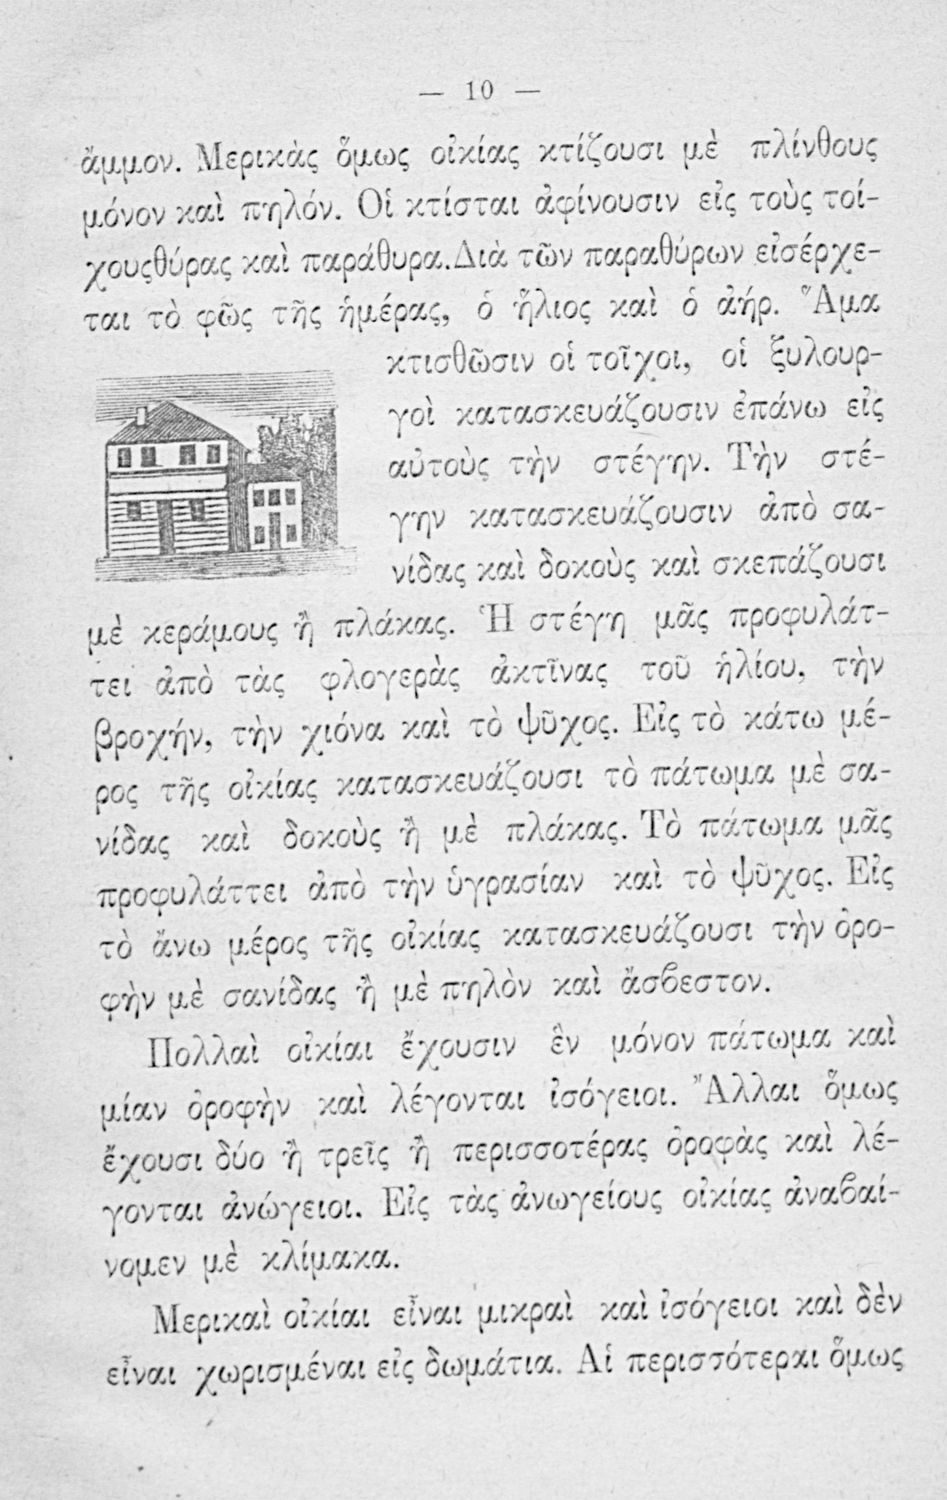 — 10 —
ἄμμον. Μερικὰς ὅμως οἰκίας κτίζουσι μὲ πλίνθους
μόνον καὶ πηλόν. Οἱ κτίσται ἀφίνουσιν εἰς τοὺς τοί-
χουςθύρας καὶ παράθυρα.Διὰ τῶν παραθύρων εἰσέρχε-
ται τὸ φῶς τῆς ἡμέρας, ὁ ἥλιος καὶ ὁ ἀήρ. Ἅμα
κτισθῶσιν οἱ τοῖχοι, οἱ ξυλουρ-
γοὶ κατασκευάζουσιν ἐπάνω εἰς
αὐτοὺς τὴν στέγην. Τὴν στέ-
γην κατασκευάζουσιν ἀπὸ σα-
νίδας καὶ δοκοὺς καὶ σκεπάζουσι
μὲ κεράμους ἢ πλάκας. Ἡ στέγη μᾶς προφυλάτ-
τει ἀπὸ τὰς φλογερὰς ἀκτῖνας τοῦ ἡλίου, τὴν
βροχήν, τὴν χιόνα καὶ τὸ ψῦχος. Εἰς τὸ κάτω μέ-
ρος τῆς οἰκίας κατασκευάζουσι τὸ πάτωμα μὲ σα-
νίδας καὶ δοκοὺς ἢ μὲ πλάκας. Τὸ πάτωμα μᾶς
προφυλάττει ἀπὸ τὴν ὑγρασίαν καὶ τὸ ψῦχος. Εἰς
τὸ ἄνω μέρος τῆς οἰκίας κατασκευάζουσι τὴν ὀρο-
φὴν μὲ σανίδας ἢ μὲ πηλὸν καὶ ἄσβεστον.
Πολλαὶ οἰκίαι ἔχουσιν ἓν μόνον πάτωμα καὶ
μίαν ὀροφὴν καὶ λέγονται ἰσόγειοι. Ἄλλαι ὅμως
ἔχουσι δύο ἢ τρεῖς ἢ περισσοτέρας ὀροφὰς καὶ λέ-
γονται ἀνώγειοι. Εἰς τὰς ἀνωγείους οἰκίας ἀναβαί-
νομεν μὲ κλίμακα.
Μερικαὶ οἰκίαι εἶναι μικραὶ καὶ ἰσόγειοι καὶ δὲν
εἶναι χωρισμέναι εἰς δωμάτια. Αἱ περισσότεραι ὅμως